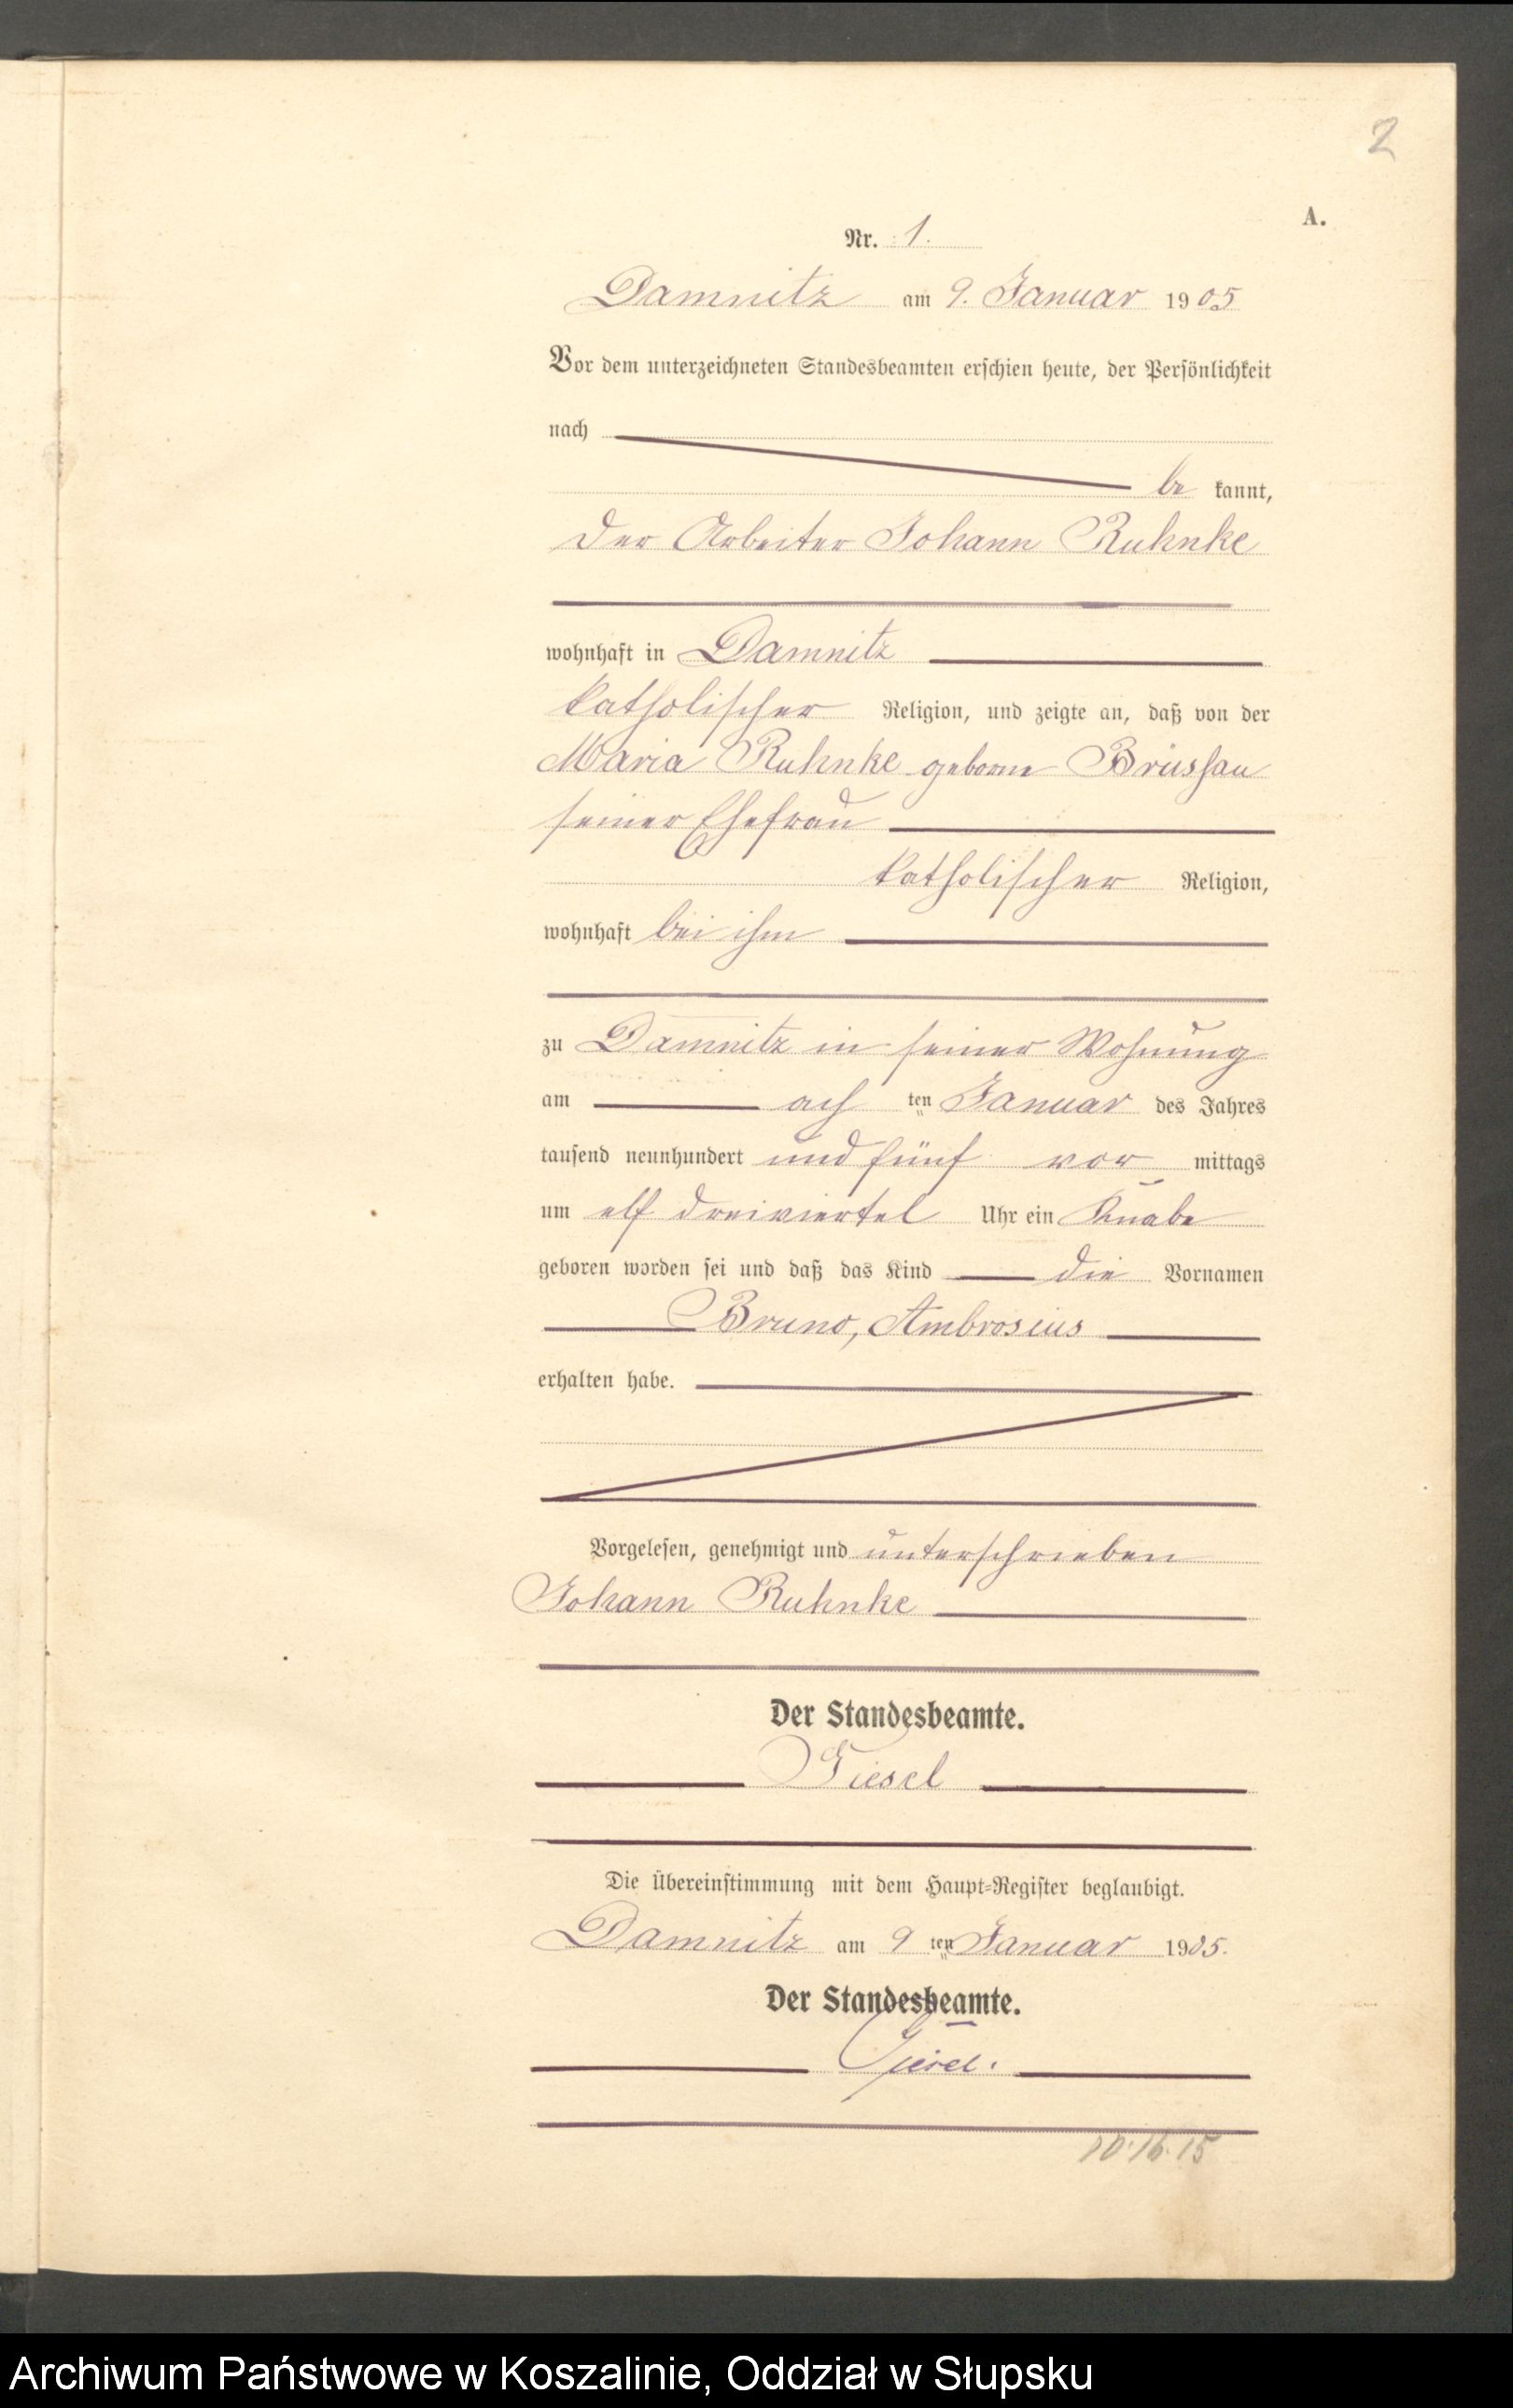 2
A.
Nr. 1.
Damnitz am 9. Januar 1905
Vor dem unterzeichneten Standesbeamten erschien heute, der Persönlichkeit
nach
be kannt,
der Arbeiter Johann Ruhnke
wohnhaft in Damnitz
katholischer Religion, und zeigte an, daß von der
Maria Ruhnke geborne
seiner Ehefrau
katholischer Religion,
wohnhaft bei ihm
zu Damnitz in seiner Wohnung
am ach ten Januar des Jahres
tausend neunhundert und fünf vor mittags
um elf dreiviertel Uhr ein Knabe
geboren worden sei und daß das Kind die Vornamen
Bruno, Ambrosius
erhalten habe.
Vorgelesen, genehmigt und unterschrieben
Johann Ruhnke
Der Standesbeamte.
Giesel
Die Übereinstimmung mit dem Haupt-Register beglaubigt.
Damnitz am 9 ten Januar 1905.
Der Standesbeamte.
Giesel.
Archiwum Państwowe w Koszalinie, Oddział w Słupsku